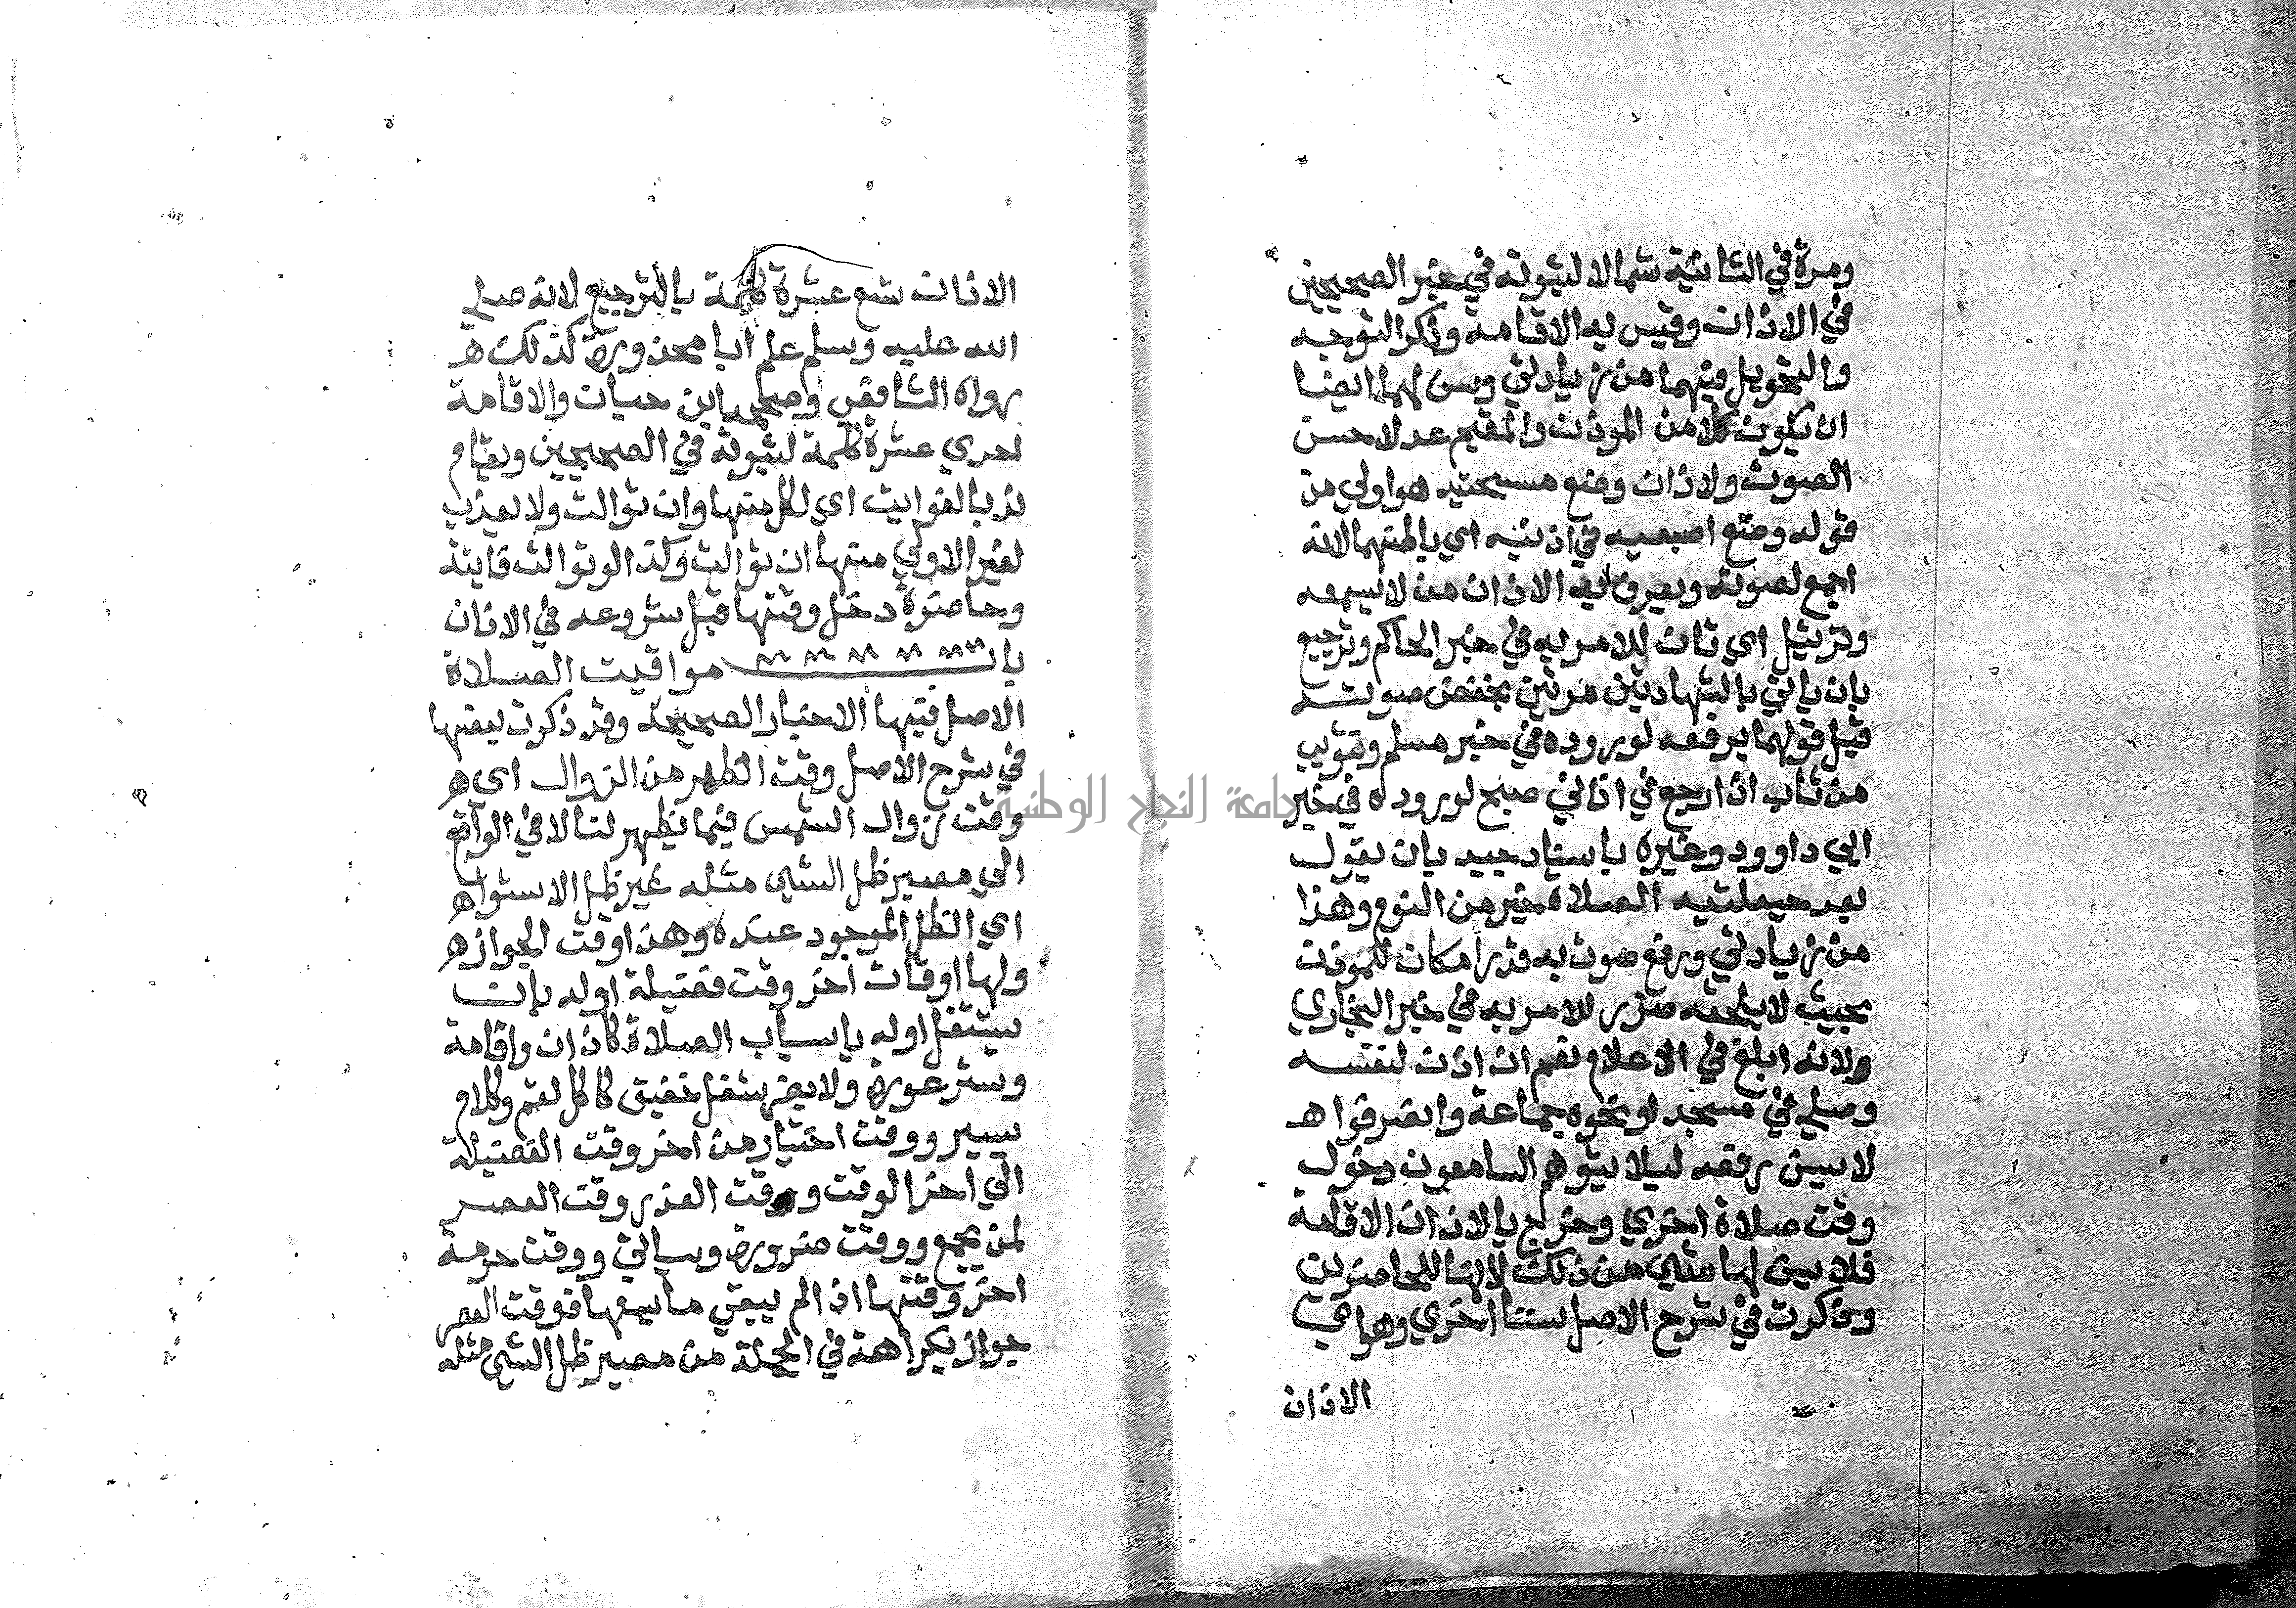 ومرة في الثانية شمالا لثبوته في خبر الصحيحين
في الاذان وقيس به الاقامة وذكر التوجه
والتحويل فيهما من زيادتي وسن لهما ايضا
ان يكون كلا من الموذن والمقيم عدلا حسن
الصوت ولاذان وضع مسبحتيه هو اولي من
قوله وضع اصبعيه في اذنيه اي باطنهما لانه
اجمع لصوته ويعرف به الاذان من لا يسمعه
وترتيل اي تان للامر به في خبر الحاكم وترجيع
بان ياتي بالشهادتين مرتين بخفض صوته
قبل قولهما برفعه لوروده في خبر مسلم وتثويب
من ثاب اذا رجع في اذاني صبح لوروده في خبر
ابي داوود وغيره باسناد جيد بان يقول
بعد حيعلتيه الصلاة خير من النوم وهذا
من زيادتي ورفع صوت به قدر امكان للموذن
بحيث لا يلحقه ضرر للامر به في خبر البخاري
ولانه ابلغ في الاعلام نعم ان اذن لنفسه
وصلي في مسجد او نحوه جماعة وانصرفوا هـ
لا يسن رفعه ليلا يتوهم السامعون دخول
وقت صلاة اخري وخرج بالاذان الاقامة
فلا يسن لها شي من ذلك لانها للحاضرين
وذكرت في شرح الاصل سننا اخري وهو اي
الاذان
الاذان تسع عشرة كلمة بالترجيع لانه صلي
الله عليه وسلم علم ابا محذورة كذلك هـ
رواه الشافعي وصححه ابن حبان والاقامة
احدي عشرة كلمة لثبوته في الصحيحين ويقام
ندبا لفوايت اي لكل منها وان توالت ولا يوذن
لغير الاولي منها ان توالت وكذا لو توالت فايتة
وحاضرة دخل وقتها قبل شروعه في الاذان
باب مواقيت الصلاة
الاصل فيها الاخبار الصحيحة وقد ذكرت بعضها
في شرح الاصل وقت الظهر من الزوال اي هـ
وقت زوال الشمس فيما يظهر لنا لا في الواقع
الي مصير ظل الشي مثله غير ظل الاستوا هـ
اي الظل الموجود عنده وهذا وقت الجواز هـ
ولها اوقات اخر وقت فضيلة اوله بان
يشتغل اوله باسباب الصلاة كاذان واقامة
وستر عورة ولا يضر شغل خفيف كاكل لقم وكلام
يسير ووقت اختيار من اخر وقت الفضيلة
الي اخر الوقت ووقت العذر وقت العصر
لمن يجمع ووقت ضرورة وسياتي ووقت حرمة
اخر وقتها اذا لم يبقي ما يسعها فوقت العصر
جواز بكراهة في الجملة من مصير ظل الشي مثله
جامعة النجاح الوطنية